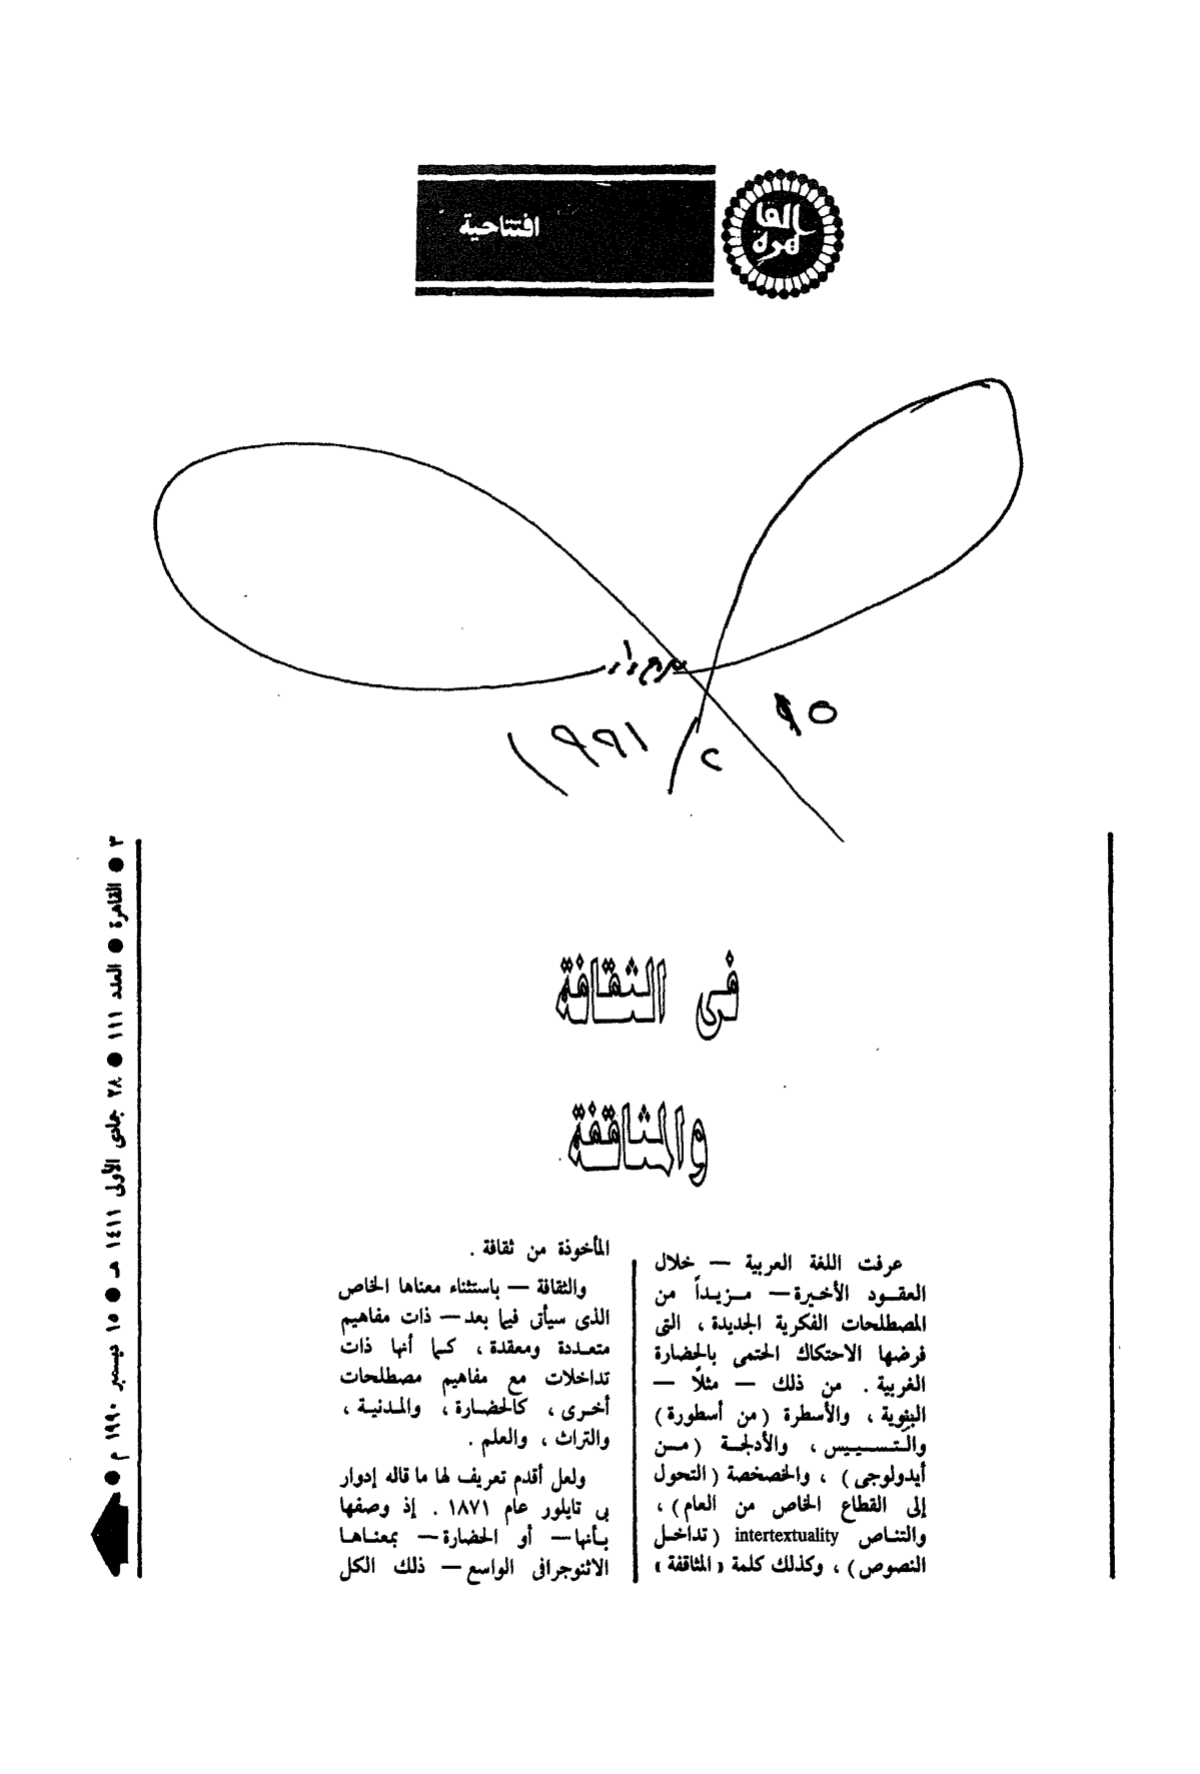 القاهرة
افتتاحية
١٩٩١/٢
فى الثقافة
والمثاقفة
عرفت اللغة العربية — خلال
العقـود الأخيرة — مزيداً من
المصطلحات الفكرية الجديدة ، التى
فرضها الاحتكاك الحتمى بالحضارة
الغربية . من ذلك — مثلاً —
البنيوية ، والأسطرة (من أسطورة)
والتسييس ، والأدلجة (من
أيدولوجى) ، والخصخصة (التحول
إلى القطاع الخاص من العام) ،
والتناص intertextuality (تداخل
النصوص) ، وكذلك كلمة « المثاقفة »
المأخوذة من ثقافة .
والثقافة — باستثناء معناها الخاص
الذى سيأتى فيما بعد — ذات مفاهيم
متعددة ومعقدة ، كما أنها ذات
تداخلات مع مفاهيم مصطلحات
أخرى ، كالحضارة ، والمدنية ،
والتراث ، والعلم .
ولعل أقدم تعريف لها ما قاله إدوار
بى تايلور عام ١٨٧١ . إذ وصفها
بأنها — أو الحضارة — بمعناها
الاثنوجرافى الواسع — ذلك الكل
٣ ● القاهرة ● العدد ١١١ ● ٢٨ جمادى الأولى ١٤١١ هـ ● ١٥ ديسمبر ١٩٩٠ م ●